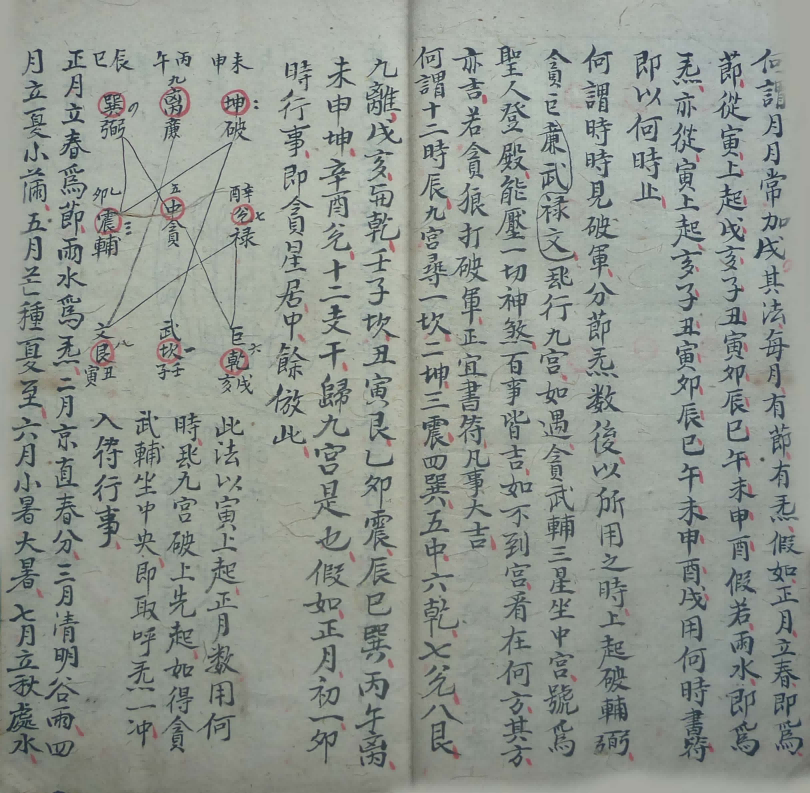 何謂月月常加戌其法每月有節有炁假如正月立春即為
節從寅上起戌亥子丑寅卯辰巳午未申酉假若雨水即為
炁亦從寅上起亥子丑寅卯辰巳午未申酉戌用何時書符
即以何時止
何謂時時見破軍分節炁数後以所用之時上起破輔弼
貪巨廉武禄文飛行九宮如遇貪武輔三星坐中宮號為
聖人登殿能壓一切神煞百事皆吉如不到宮看在何方其方
亦吉若貪狼打破軍正宜書符凡事大吉
何謂十二時辰九宮尋一坎二坤三震四巽五中六乾七兊八艮
九離戌亥而乾壬子坎丑寅艮乙卯震辰巳巽丙午离
未申坤辛酉兊十二支干歸九宮是也假如正月初一卯
時行事即貪星居中餘倣此
未申
二
坤
破
丙午
九
离
廉
辰巳
巽
弼
辛酉
七
兊
禄
五
中
貪
乙卯
三
震
輔
巨
六
乾
戌亥
武
一
坎
壬子
文
八
艮
丑寅
此法以寅上起正月数用何
時飛九宮破上先起如得貪
武輔坐中央即取呼炁一冲
入符行事
正月立春為節雨水為炁二月京直春分三月清明谷雨四
月立夏小蒲五月芒種夏至六月小暑大暑七月立秋處水